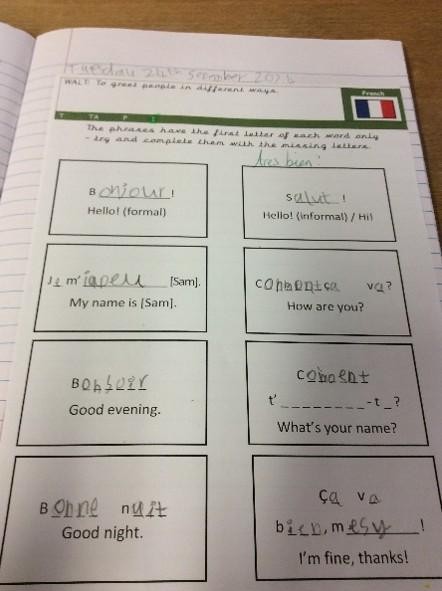 Tuesday 24th September
WALT: To greet people in different ways.
French
T TA P I
The phrases have the first letter of each word only
- try and complete them with the missing letters.
Tres bien!
Bonjour!
Hello! (formal)
Salut!
Hello! (informal) / Hi!
Je m'iapell [Sam].
My name is [Sam].
Comentça va?
How are you?
Bonsoir
Good evening.
Coment
t'_________-t_?
What's your name?
Bonne nuit
Good night.
Ça va
bien, mesy!
I'm fine, thanks!